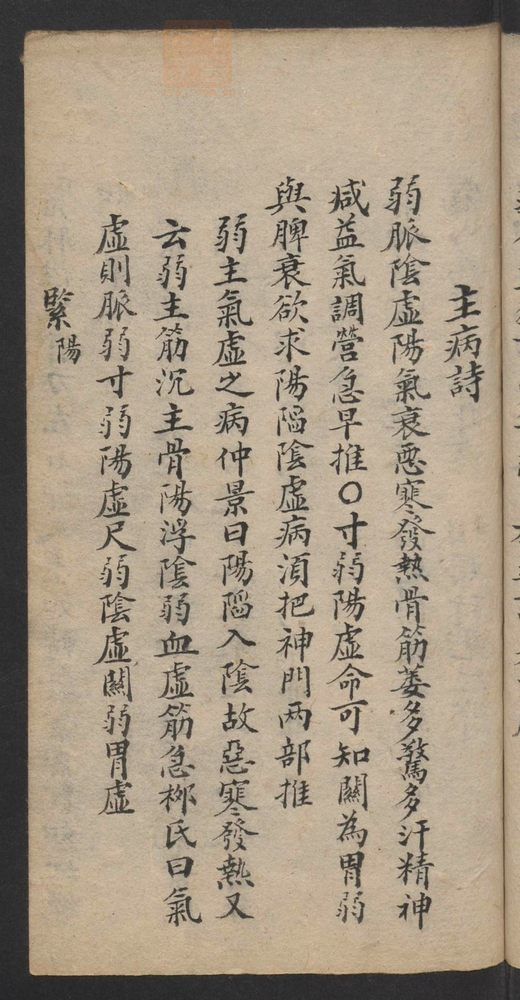 主病詩
弱脈陰虛陽氣衰惡寒發熱骨筋萎多驚多汗精神
咸益氣調營急早推〇寸弱陽虛命可知關為胃弱
與脾衰欲求陽陷陰虛病須把神門两部推
弱主氣虛之病仲景曰陽陷入陰故惡寒發熱又
云弱主筋沉主骨陽浮陰弱血虛筋急栁氏曰氣
虛則脈弱寸弱陽虛尺弱陰虛關弱胃虛
緊陽